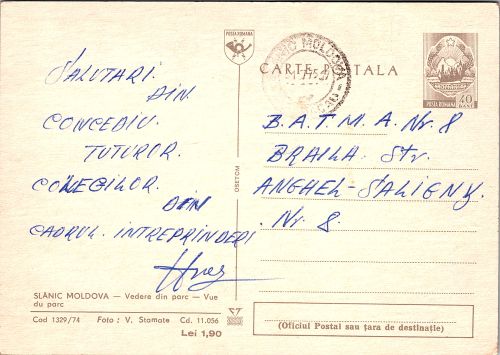 POSTA ROMANA
CARTE POSTALA
POSTA ROMANA
40
BANI
SALUTARI
DIN
CONCEDIU
TUTUROR
COLEGILOR
DIN
CADRUL INTREPRINDERI
B.A.T.M.A. Nr. 8
BRAILA Str.
ANGHEL-SALIGNY
Nr 8.
OSETOM
SLĂNIC MOLDOVA — Vedere din parc — Vue
du parc
Cod 1329/74 Foto : V. Stamate Cd. 11.056
Lei 1,90
(Oficiul Postal sau țara de destinație)